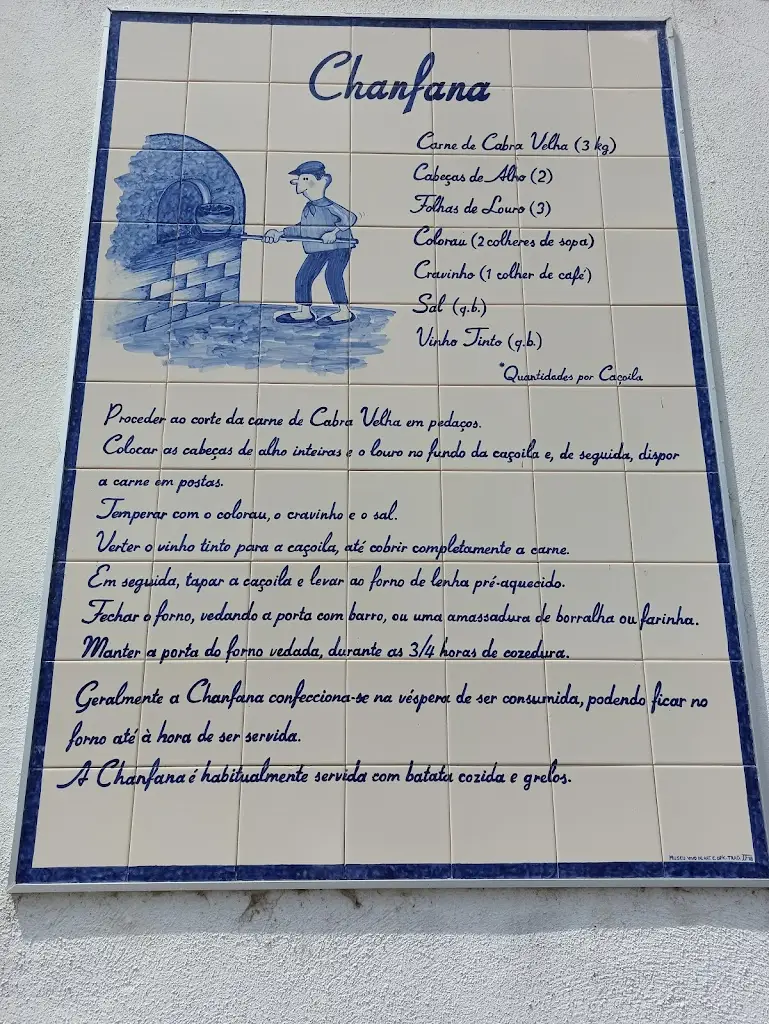 Chanfana
Carne de Cabra Velha (3 kg)
Cabeças de Alho (2)
Folhas de Louro (3)
Colorau (2 colheres de sopa)
Cravinho (1 colher de café)
Sal (q.b.)
Vinho Tinto (q.b.)
*Quantidades por Caçoila
Proceder ao corte da carne de Cabra Velha em pedaços.
Colocar as cabeças de alho inteiras e o louro no fundo da caçoila e, de seguida, dispor
a carne em postas.
Temperar com o colorau, o cravinho e o sal.
Verter o vinho tinto para a caçoila, até cobrir completamente a carne.
Em seguida, tapar a caçoila e levar ao forno de lenha pré-aquecido.
Fechar o forno, vedando a porta com barro, ou uma amassadura de borralha ou farinha.
Manter a porta do forno vedada, durante as 3/4 horas de cozedura.
Geralmente a Chanfana confecciona-se na véspera de ser consumida, podendo ficar no
forno até à hora de ser servida.
A Chanfana é habitualmente servida com batata cozida e grelos.
MUSEU VIVO DE ART. E OFÍC. TRAD.